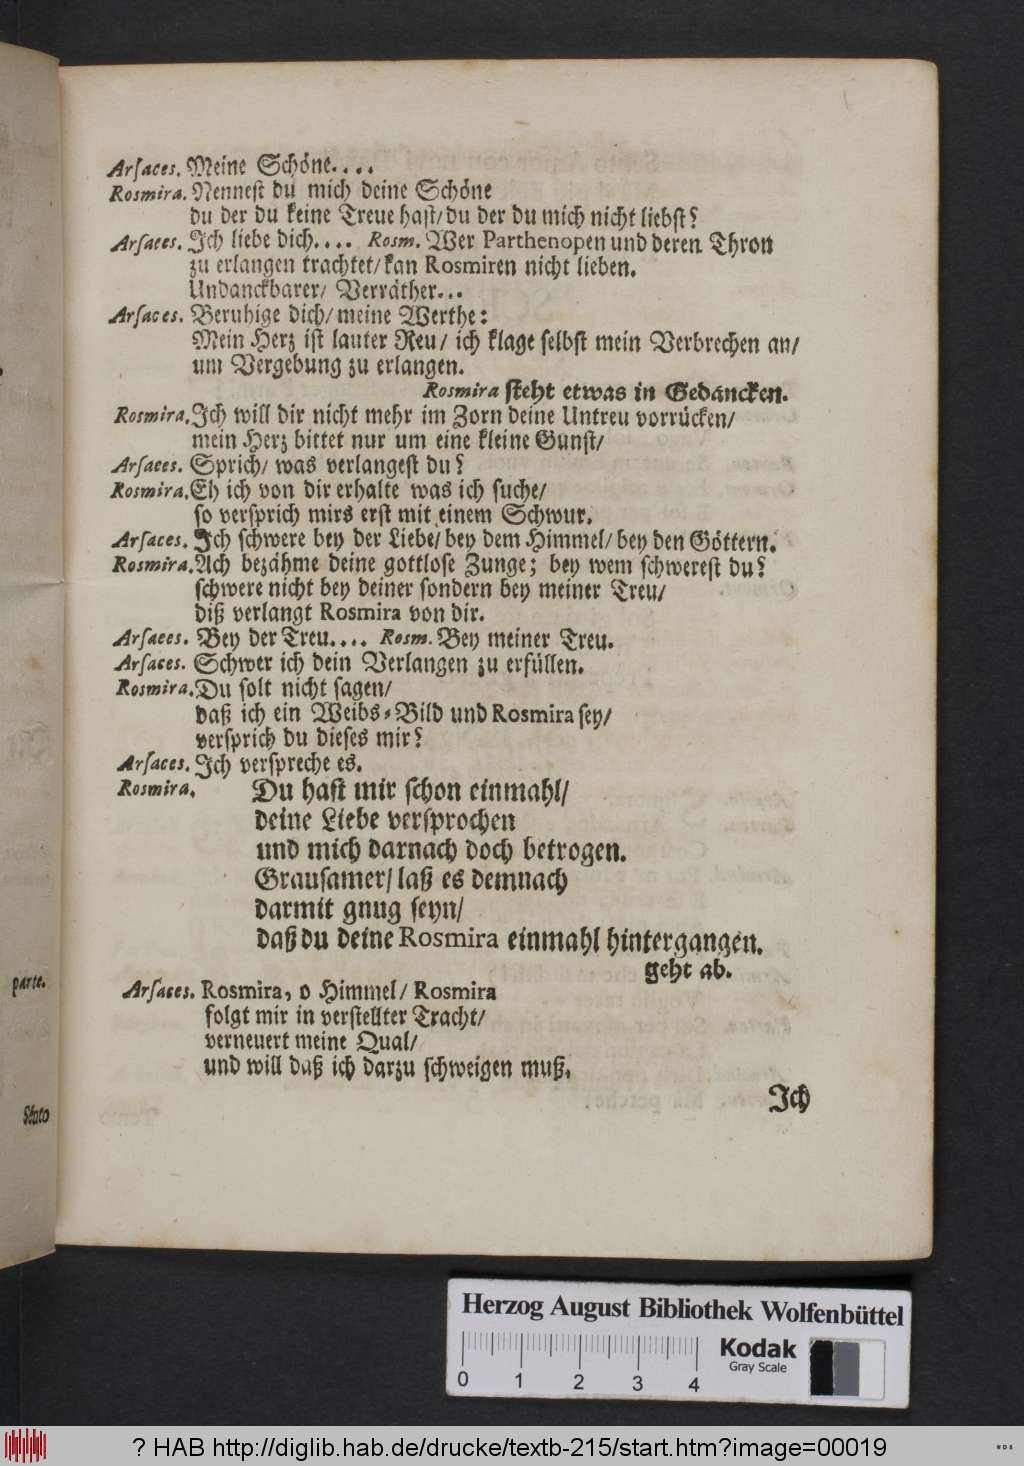 Arſaces. Meine Schöne....
Rosmira. Nennest du mich deine Schöne
du der du keine Treue hast/ du der du mich nicht liebst?
Arſaces. Ich liebe dich.... Rosm. Wer Parthenopen und deren Thron
zu erlangen trachtet/ kan Rosmiren nicht lieben.
Undanckbarer/ Verräther...
Arſaces. Beruhige dich/ meine Werthe:
Mein Herz ist lauter Reu/ ich klage selbst mein Verbrechen an/
um Vergebung zu erlangen.
Rosmira steht etwas in Gedancken.
Rosmira. Ich will dir nicht mehr im Zorn deine Untreu vorrücken/
mein Herz bittet nur um eine kleine Gunst/
Arſaces. Sprich/ was verlangest du?
Rosmira. Eh ich von dir erhalte was ich suche/
so versprich mirs erst mit einem Schwur.
Arſaces. Ich schwere bey der Liebe/ bey dem Himmel/ bey den Göttern.
Rosmira. Ach bezähme deine gottlose Zunge; bey wem schwerest du?
schwere nicht bey deiner sondern bey meiner Treu/
diß verlangt Rosmira von dir.
Arſaces. Bey der Treu.... Rosm. Bey meiner Treu.
Arſaces. Schwer ich dein Verlangen zu erfüllen.
Rosmira. Du solt nicht sagen/
daß ich ein Weibs-Bild und Rosmira sey/
versprich du dieses mir?
Arſaces. Ich verspreche es.
Rosmira. Du hast mir schon einmahl/
deine Liebe versprochen
und mich darnach doch betrogen.
Grausamer/ laß es demnach
darmit gnug seyn/
daß du deine Rosmira einmahl hintergangen.
geht ab.
parte.
Arſaces. Rosmira, o Himmel/ Rosmira
folgt mir in verstellter Tracht/
verneuert meine Qual/
und will daß ich darzu schweigen muß.
Ich
Herzog August Bibliothek Wolfenbüttel
0 1 2 3 4
Kodak
Gray Scale
? HAB http://diglib.hab.de/drucke/textb-215/start.htm?image=00019